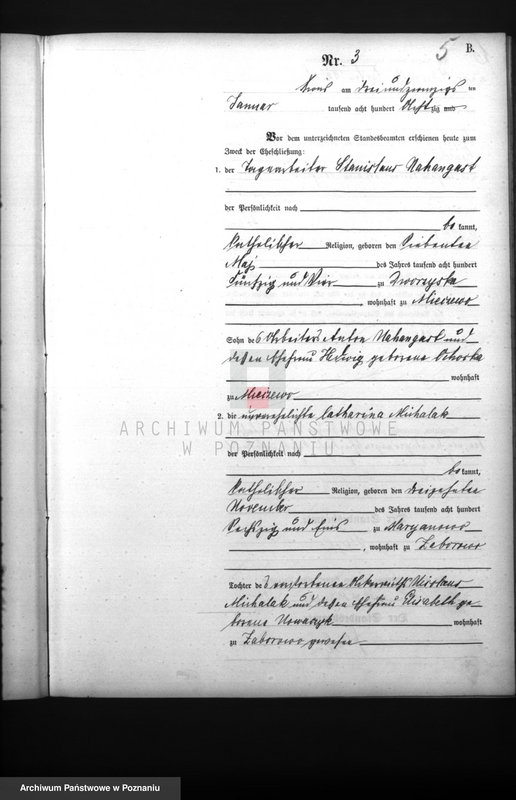 5 B.
Nr. 3
am drei und zwanzigs ten
Januar tausend acht hundert Acht zig und
Vor dem unterzeichneten Standesbeamten erschienen heute zum
Zweck der Eheschließung:
1. der Stanislaus Nahangart
der Persönlichkeit nach
be kannt,
katholischer Religion, geboren den siebenten
Maj des Jahres tausend acht hundert
fünfzig und vier zu
, wohnhaft zu Mieczewo
Sohn des Arbeiters Anton Nahangart und
dessen Ehefrau Hedwig geborene
wohnhaft
zu Mieczewo
2. die unverehelichte Catharina Michalak
der Persönlichkeit nach
be kannt,
katholischer Religion, geboren den dreizehnten
November des Jahres tausend acht hundert
sechszig und eins zu Maryanowo
, wohnhaft zu Zaborowo
Tochter des verstorbenen Nicolaus
Michalak und dessen Ehefrau Elisabeth ge-
borene Nowaczyk wohnhaft
zu Zaborowo gewesen
ARCHIWUM PAŃSTWOWE
W POZNANIU
Archiwum Państwowe w Poznaniu